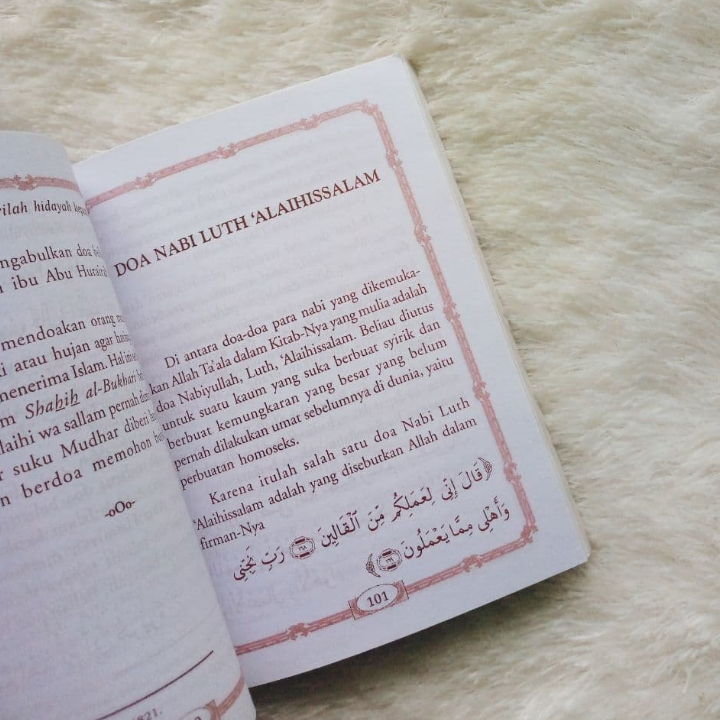 rilah hidayah
ngabulkan doa
ibu Abu
mendoakan orang
atau hujan agar
menerima Islam.
Shahih al-Bukhari
laihi wa sallam pernah
suku Mudhar diberi
n berdoa memohon
-oOo-
821.
DOA NABI LUTH ‘ALAIHISSALAM
Di antara doa-doa para nabi yang dikemuka-
kan Allah Ta'ala dalam Kitab-Nya yang mulia adalah
doa Nabiyullah, Luth, 'Alaihissalam. Beliau diutus
untuk suatu kaum yang suka berbuat syirik dan
berbuat kemungkaran yang besar yang belum
pernah dilakukan umat sebelumnya di dunia, yaitu
perbuatan homoseks.
Karena itulah salah satu doa Nabi Luth
'Alaihissalam adalah yang disebutkan Allah dalam
firman-Nya
﴿قَالَ إِنِّى لِعَمَلِكُم مِّنَ ٱلْقَالِينَ ١٦٨ رَبِّ نَجِّنِى
وَأَهْلِى مِمَّا يَعْمَلُونَ ١٦٩﴾
101